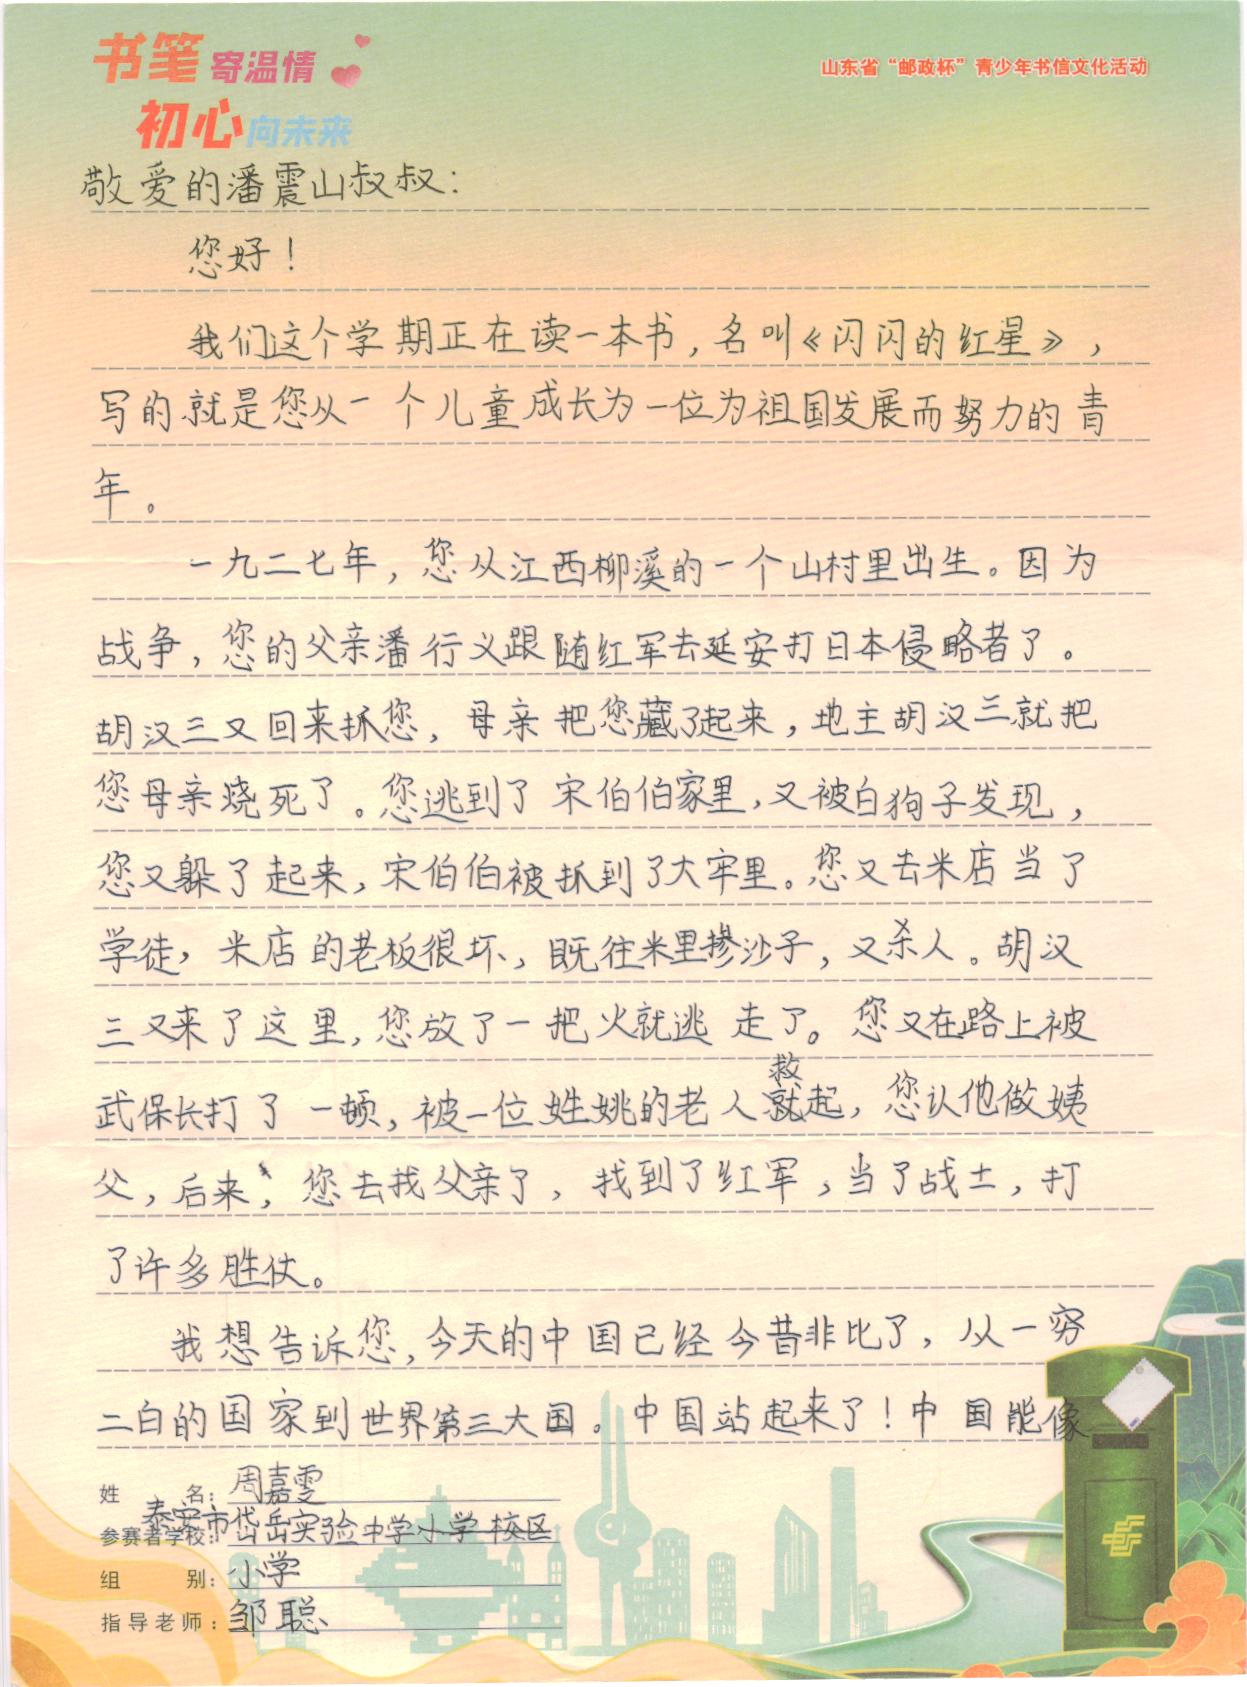 书笔寄温情
初心向未来
山东省“邮政杯”青少年书信文化活动
敬爱的潘震山叔叔：
您好！
我们这个学期正在读一本书，名叫《闪闪的红星》，
写的就是您从一个儿童成长为一位为祖国发展而努力的青
年。
一九二七年，您从江西柳溪的一个山村里出生。因为
战争，您的父亲潘行义跟随红军去延安打日本侵略者了。
胡汉三又回来抓您，母亲把您藏了起来，地主胡汉三就把
您母亲烧死了。您逃到了宋伯伯家里，又被白狗子发现，
您又躲了起来，宋伯伯被抓到了大牢里。您又去米店当了
学徒，米店的老板很坏，既往米里掺沙子，又杀人。胡汉
三又来了这里，您放了一把火就逃走了。您又在路上被
武保长打了一顿，被一位姓姚的老人救起，您认他做姨
父，后来，您去找父亲了，找到了红军，当了战士，打
了许多胜仗。
我想告诉您，今天的中国已经今昔非比了，从一穷
二白的国家到世界第三大国。中国站起来了！中国能像
姓名：周嘉雯
参赛者学校：泰安市岱岳实验中学小学校区
组别：小学
指导老师：邹聪